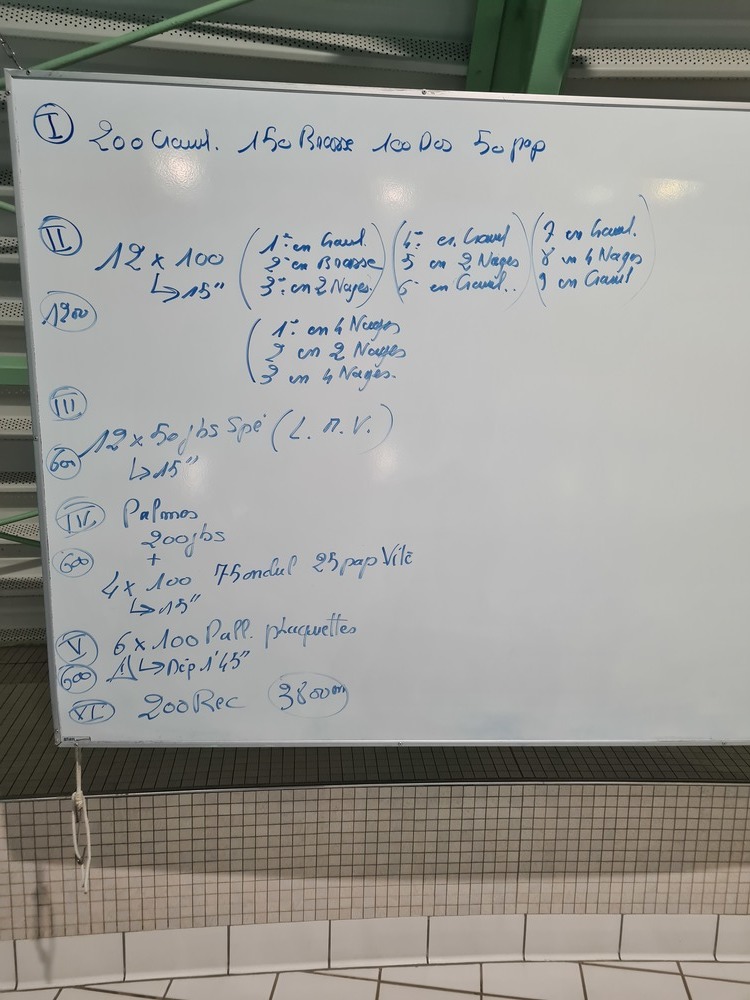 I 200 Crawl. 150 Brasse 100 Dos 50 pap
II 12 x 100
↳ 15"
1200
(1° en Crawl.
2° en Brasse
3° en 2 Nages.)
(4° en Crawl
5 en 2 Nages
6 en Crawl.)
(7 en Crawl.
8 en 4 Nages
9 en Crawl)
(1° en 4 Nages
2 en 2 Nages
3 en 4 Nages.
III
12 x 50 jbs Spé (L. M. V.)
600 ↳ 15"
IV Palmes
200 jbs
600 +
4 x 100 75 ondul 25 pap Vite
↳ 15"
V 6 x 100 Pull. plaquettes
600 ⚠ ↳ Dép 1'45"
VI 200 Rec 3800m